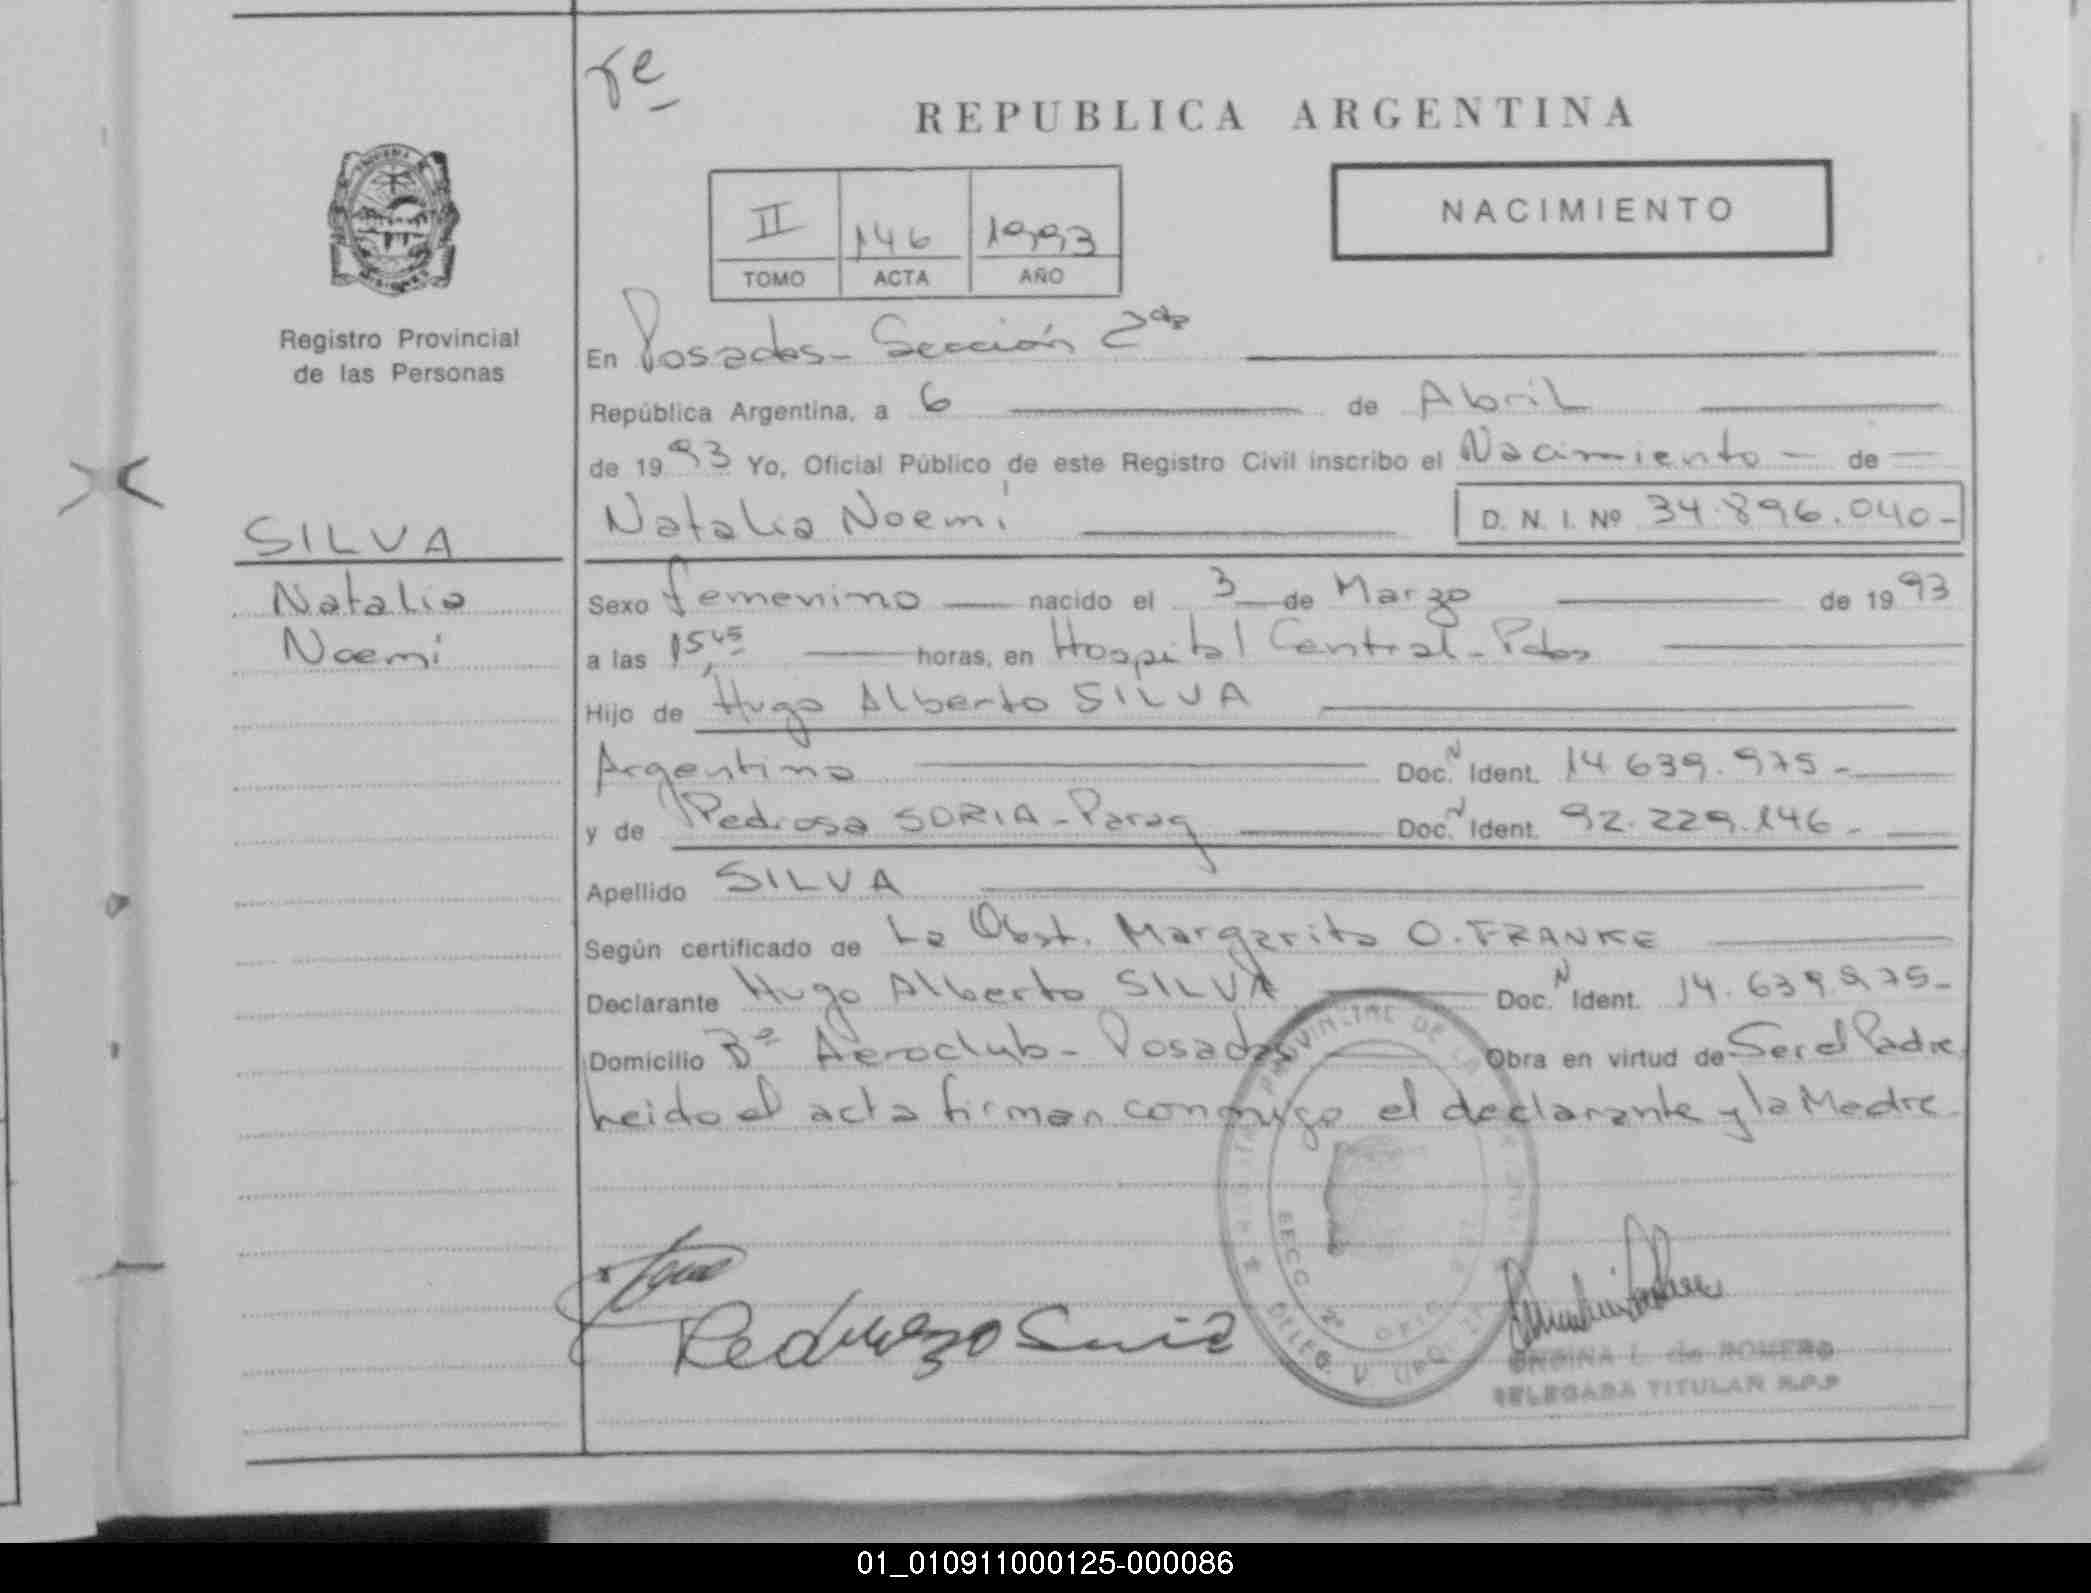 re
REPUBLICA ARGENTINA
NACIMIENTO
II 146 1993
TOMO ACTA AÑO
Registro Provincial
de las Personas
En Posadas - Sección 2da
República Argentina, a 6 de Abril
de 1993 Yo, Oficial Público de este Registro Civil inscribo el Nacimiento - de
Natalia Noemí D. N. I. Nº 34.896.040-
SILVA
Natalia
Noemí
Sexo femenino nacido el 3 de Marzo de 1993
a las 15,45 horas, en Hospital Central - Pdas
Hijo de Hugo Alberto SILVA
Argentino Doc. N Ident. 14.639.975-
y de Pedrosa SORIA - Parag Doc. N Ident. 92.229.146-
Apellido SILVA
Según certificado de La Obst. Margarita O. FRANKE
Declarante Hugo Alberto SILVA Doc. N Ident. 14.639.975-
Domicilio Bº Aeroclub - Posadas Obra en virtud de Ser el Padre
Leido el acta firman conmigo el declarante y la Madre
REGISTRO PROVINCIAL DE LAS
SECC. 2ª
L. de ROMERO
DELEGADA TITULAR R.P.P
01_010911000125-000086